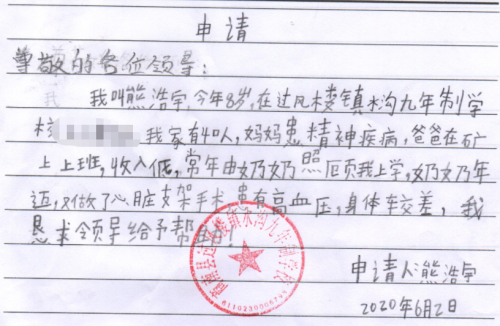 申请
尊敬的各位领导:
我叫熊浩宇,今年8岁,在过风楼镇水沟九年制学
校 我家有4口人,妈妈患精神疾病,爸爸在矿
上上班,收入低,常年由奶奶照顾我上学,奶奶年
迈,又做了心脏支架手术患有高血压,身体较差,我
恳求领导给予帮助!
申请人:熊浩宇
2020年6月2日
过风楼镇水沟九年制学校